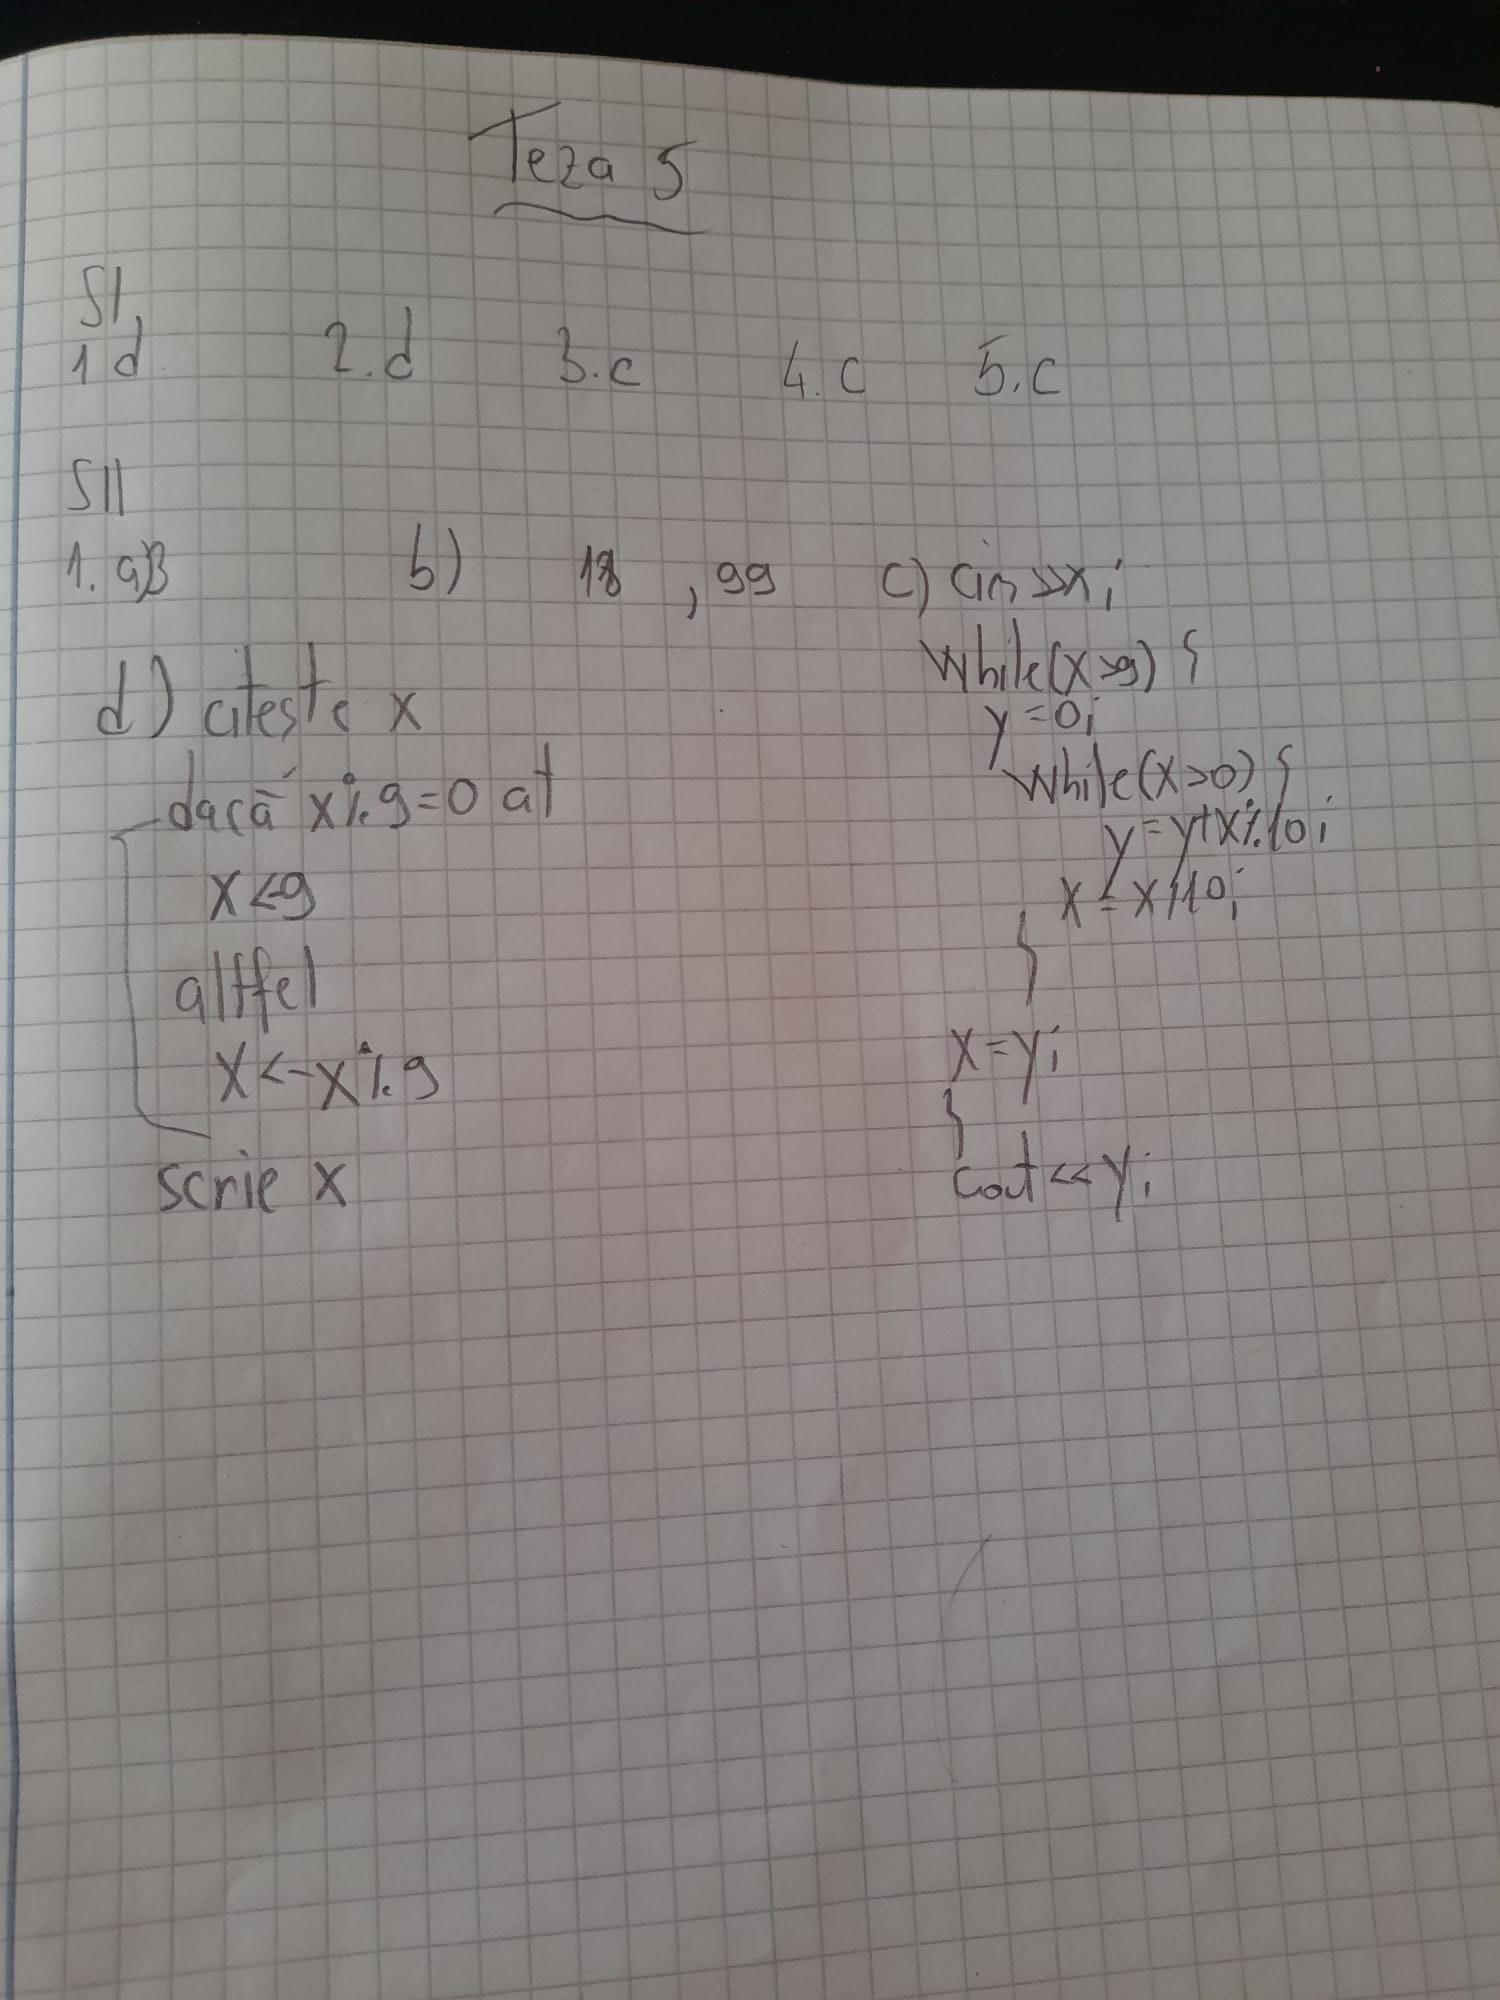 Teza 5
SI.
1 d. 2. d 3. c 4. c 5. c
SII
1. a)3 b) 18 , 99 c) cin >>x;
while(x>9) {
y=0;
while(x>0) {
y=y+x%10;
x=x/10;
}
x=y;
}
cout<<y;
d) citeste x
dacă x%9=0 at
x<-9
altfel
x<-x%9
scrie x